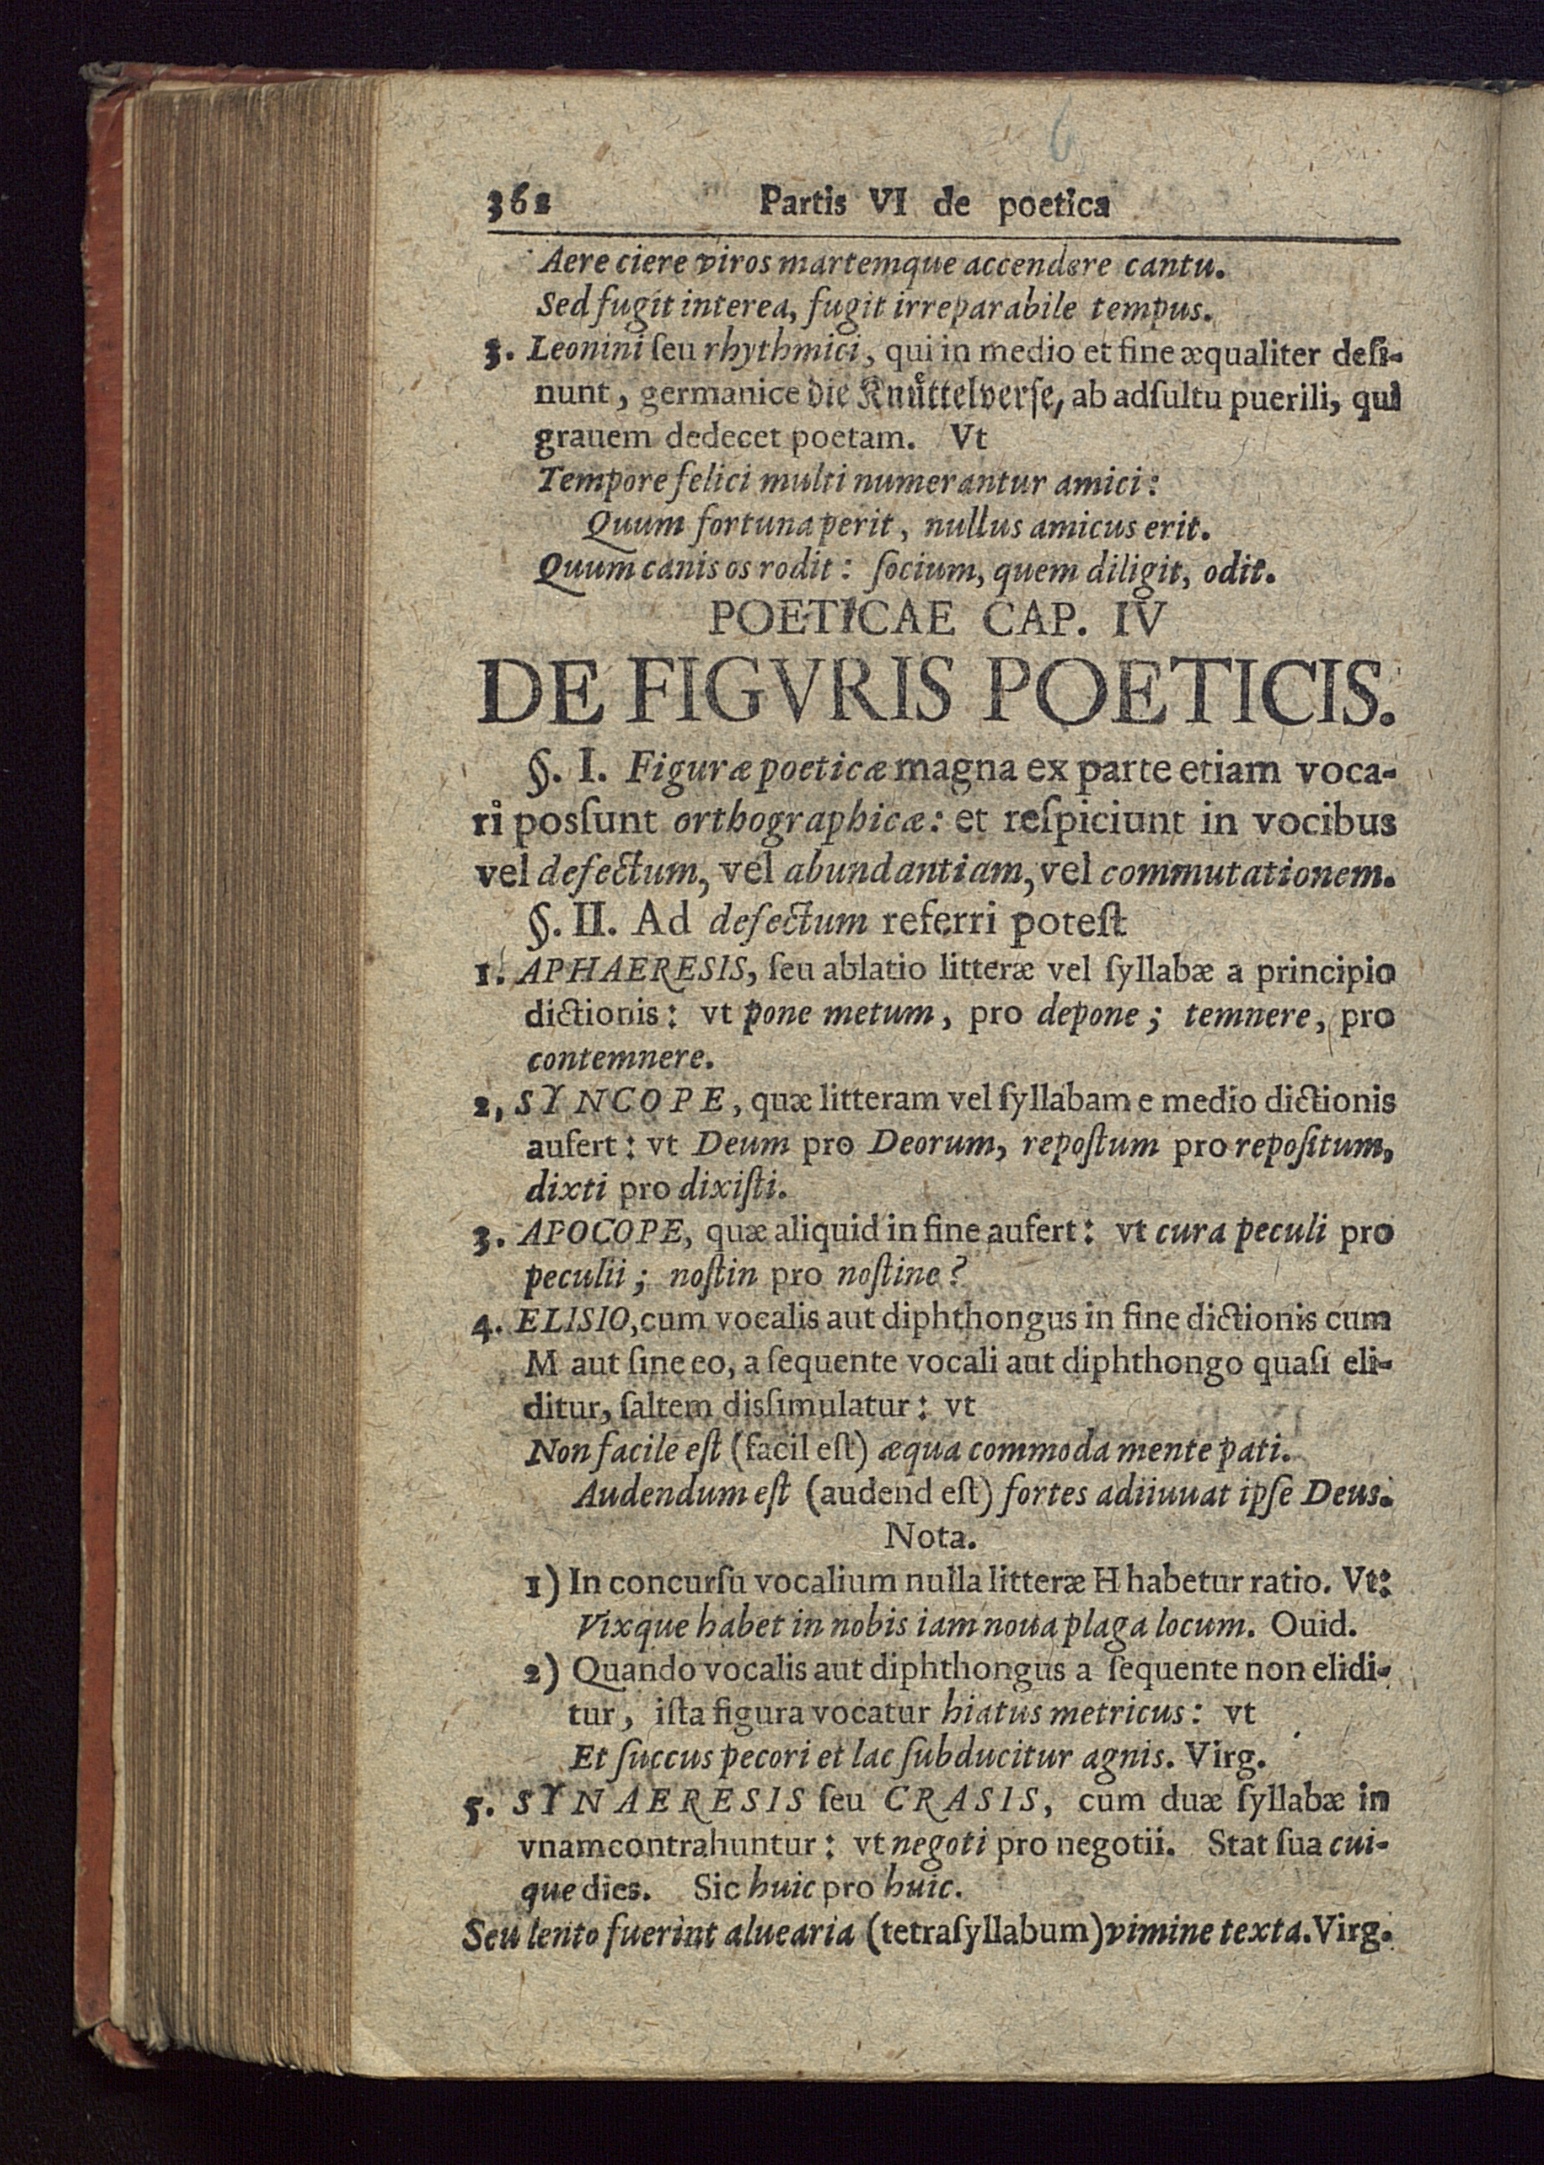 6
362 Partis VI de poetica
Aere ciere viros martemque accendere cantu.
Sed fugit interea, fugit irreparabile tempus.
3. Leonini ſeu rhythmici, qui in medio et fine æqualiter deſi-
nunt, germanice die Knuͤttelverſe, ab adſultu puerili, qui
grauem dedecet poetam. Vt
Tempore felici multi numerantur amici:
Quum fortuna perit, nullus amicus erit.
Quum canis os rodit: ſocium, quem diligit, odit.
POETICAE CAP. IV
DE FIGVRIS POETICIS.
§. I. Figuræ poeticæ magna ex parte etiam voca-
ri posſunt orthographicæ: et reſpiciunt in vocibus
vel defectum, vel abundantiam, vel commutationem.
§. II. Ad defectum referri poteſt
1. APHAERESIS, ſeu ablatio litteræ vel ſyllabæ a principio
dictionis: vt pone metum, pro depone; temnere, pro
contemnere.
2, SYNCOPE, quæ litteram vel ſyllabam e medio dictionis
aufert: vt Deum pro Deorum, repoſtum pro repoſitum,
dixti pro dixiſti.
3. APOCOPE, quæ aliquid in fine aufert: vt cura peculi pro
peculii; noſtin pro noſtine?
4. ELISIO, cum vocalis aut diphthongus in fine dictionis cum
M aut ſine eo, a ſequente vocali aut diphthongo quaſi eli-
ditur, ſaltem disſimulatur: vt
Non facile eſt (facil eſt) æqua commoda mente pati.
Audendum eſt (audend eſt) fortes adiiuuat ipſe Deus.
Nota.
1) In concurſu vocalium nulla litteræ H habetur ratio. Vt:
Vixque habet in nobis iam noua plaga locum. Ouid.
2) Quando vocalis aut diphthongus a ſequente non elidi-
tur, iſta figura vocatur hiatus metricus: vt
Et ſuccus pecori et lac ſubducitur agnis. Virg.
5. SYNAERESIS ſeu CRASIS, cum duæ ſyllabæ in
vnam contrahuntur: vt negoti pro negotii. Stat ſua cui-
que dies. Sic huic pro huic.
Seu lento fuerint aluearia (tetraſyllabum) vimine texta. Virg.